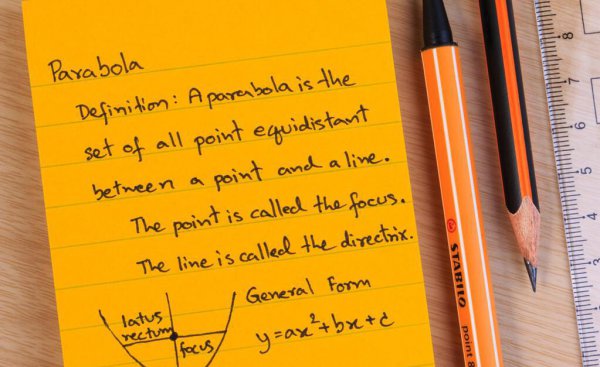 Parabola
Definition: A parabola is the
set of all point equidistant
between a point and a line.
The point is called the focus.
The line is called the directrix.
General Form
y=ax²+bx+c
latus
rectum
focus
STABILO
point 8
8
7
6
5
3